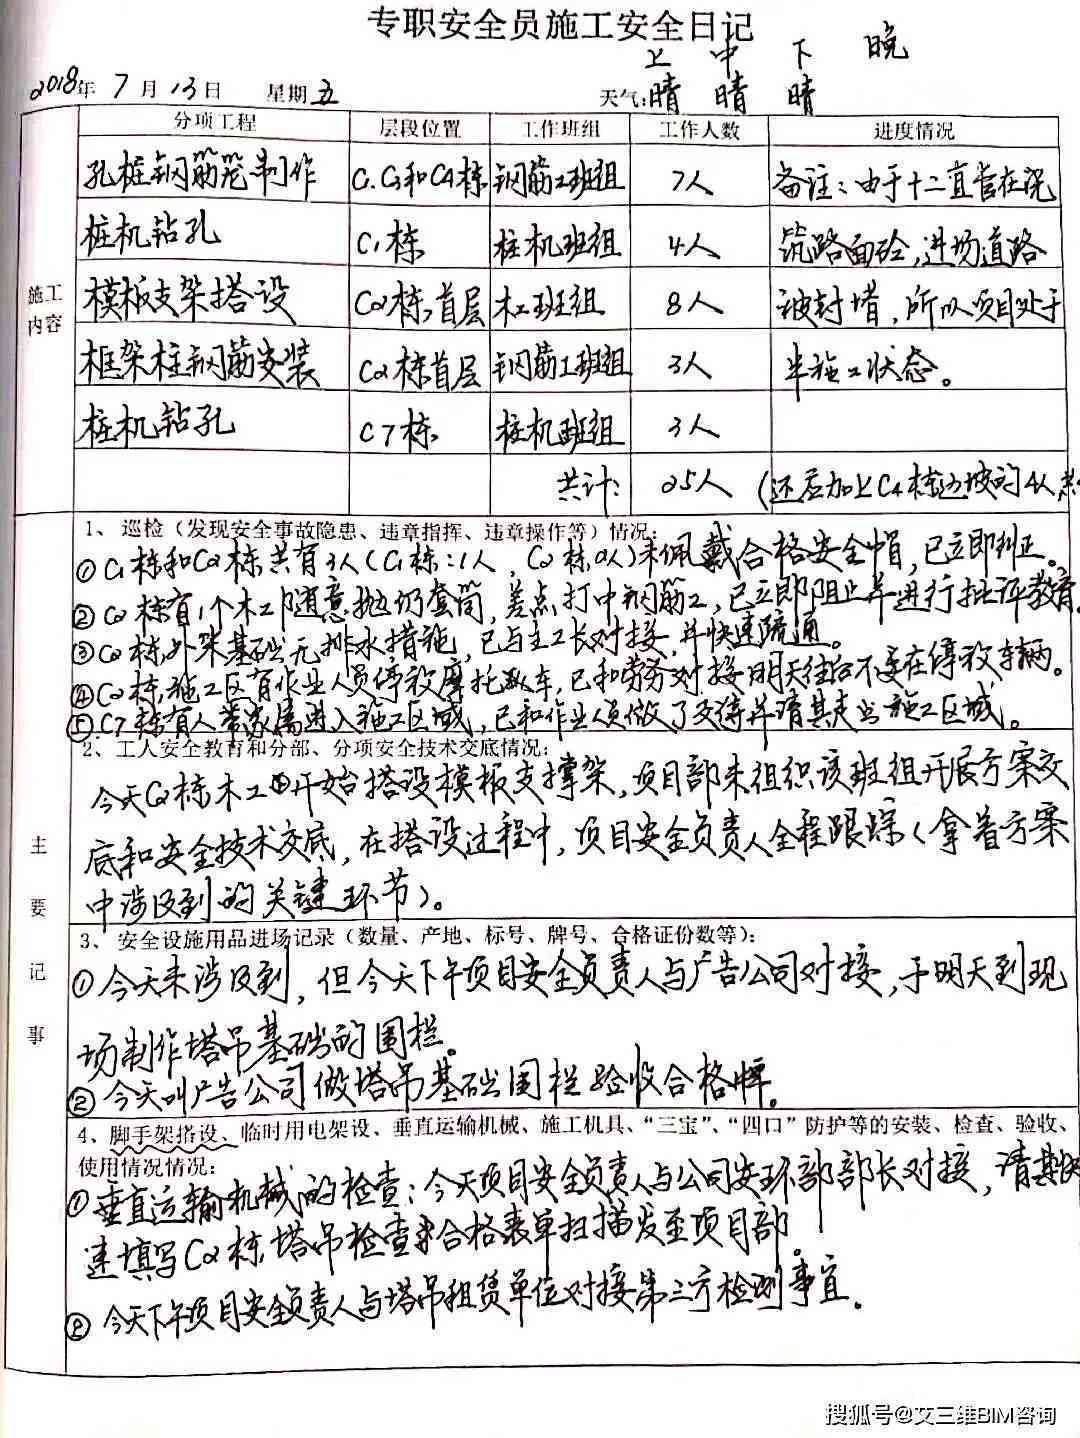 专职安全员施工安全日记
上 中 下 晚
2018年 7月 13日 星期五 天气:晴 晴 晴
分项工程 层段位置 工作班组 工作人数 进度情况
孔桩钢筋笼制作 C1.C3和C4栋 钢筋工班组 7人 备注:由于十二直管在浇
桩机钻孔 C1栋 桩机班组 4人 筑路面砼,进场道路
施工内容
模板支架搭设 C2栋,首层 木工班组 8人 被封堵,所以项目处于
框架柱钢筋安装 C2栋首层 钢筋工班组 3人 半施工状态。
桩机钻孔 C7栋 桩机班组 3人
共计: 25人 (还应加上C4栋边坡的4人
主要记事
1、巡检(发现安全事故隐患、违章指挥、违章操作等)情况:
①C1栋和C2栋共有3人(C1栋:1人,C2栋2人)未佩戴合格安全帽,已立即纠正。
②C2栋有1个木工随意抛扔套筒,差点打中钢筋工,已立即阻止并进行批评教育
③C2栋,外架基础无排水措施,已与主工长对接,并快速疏通。
④C2栋,施工区有作业人员停放摩托车,已和劳务对接明天往后不要在停放车辆。
⑤C7栋有人带家属进入施工区域,已和作业人员做了交待并请其走出施工区域。
2、工人安全教育和分部、分项安全技术交底情况:
今天C2栋木工开始搭设模板支撑架,项目部未组织该班组开展方案交
底和安全技术交底,在搭设过程中,项目安全负责人全程跟踪(拿着方案
中涉及到的关键环节)。
3、安全设施用品进场记录(数量、产地、标号、牌号、合格证份数等):
①今天未涉及到,但今天下午项目安全负责人与广告公司对接,于明天到现
场制作塔吊基础的围栏。
②今天叫广告公司做塔吊基础围栏验收合格牌。
4、脚手架搭设、临时用电架设、垂直运输机械、施工机具、“三宝”、“四口”防护等的安装、检查、验收、
使用情况情况:
①垂直运输机械的检查:今天项目安全负责人与公司安环部部长对接,请其快
速填写C2栋,塔吊检查合格表单扫描发至项目部。
②今天下午项目安全负责人与塔吊租赁单位对接第三方检测事宜。
搜狐号@艾三维BIM咨询